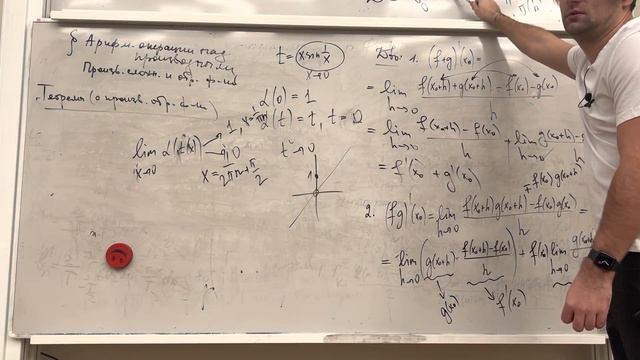 § Арифм. операции над
производными
Произв. слож. и обр. ф-ии
Теорема (о произв. обр. ф-ии)
t = x sin 1/x
x→0
α(0) = 1
α(t) = t, t ≠ 0
lim α(t(x))
x→0
t→0
1
Док-во: 1. (f+g)'(x₀) =
= lim f(x₀+h)+g(x₀+h) − f(x₀) − g(x₀)
h→0 h
= lim f(x₀+h) − f(x₀) + lim g(x₀+h) −
h→0 h h→0
= f'(x₀) + g'(x₀)
2. (fg)'(x₀) = lim f(x₀+h)g(x₀+h) − f(x₀)g(x₀) =
h→0 h
= lim (g(x₀+h) · f(x₀+h) − f(x₀) / h) + f(x₀) lim g(x₀
h→0 h→0
g(x₀) f'(x₀)